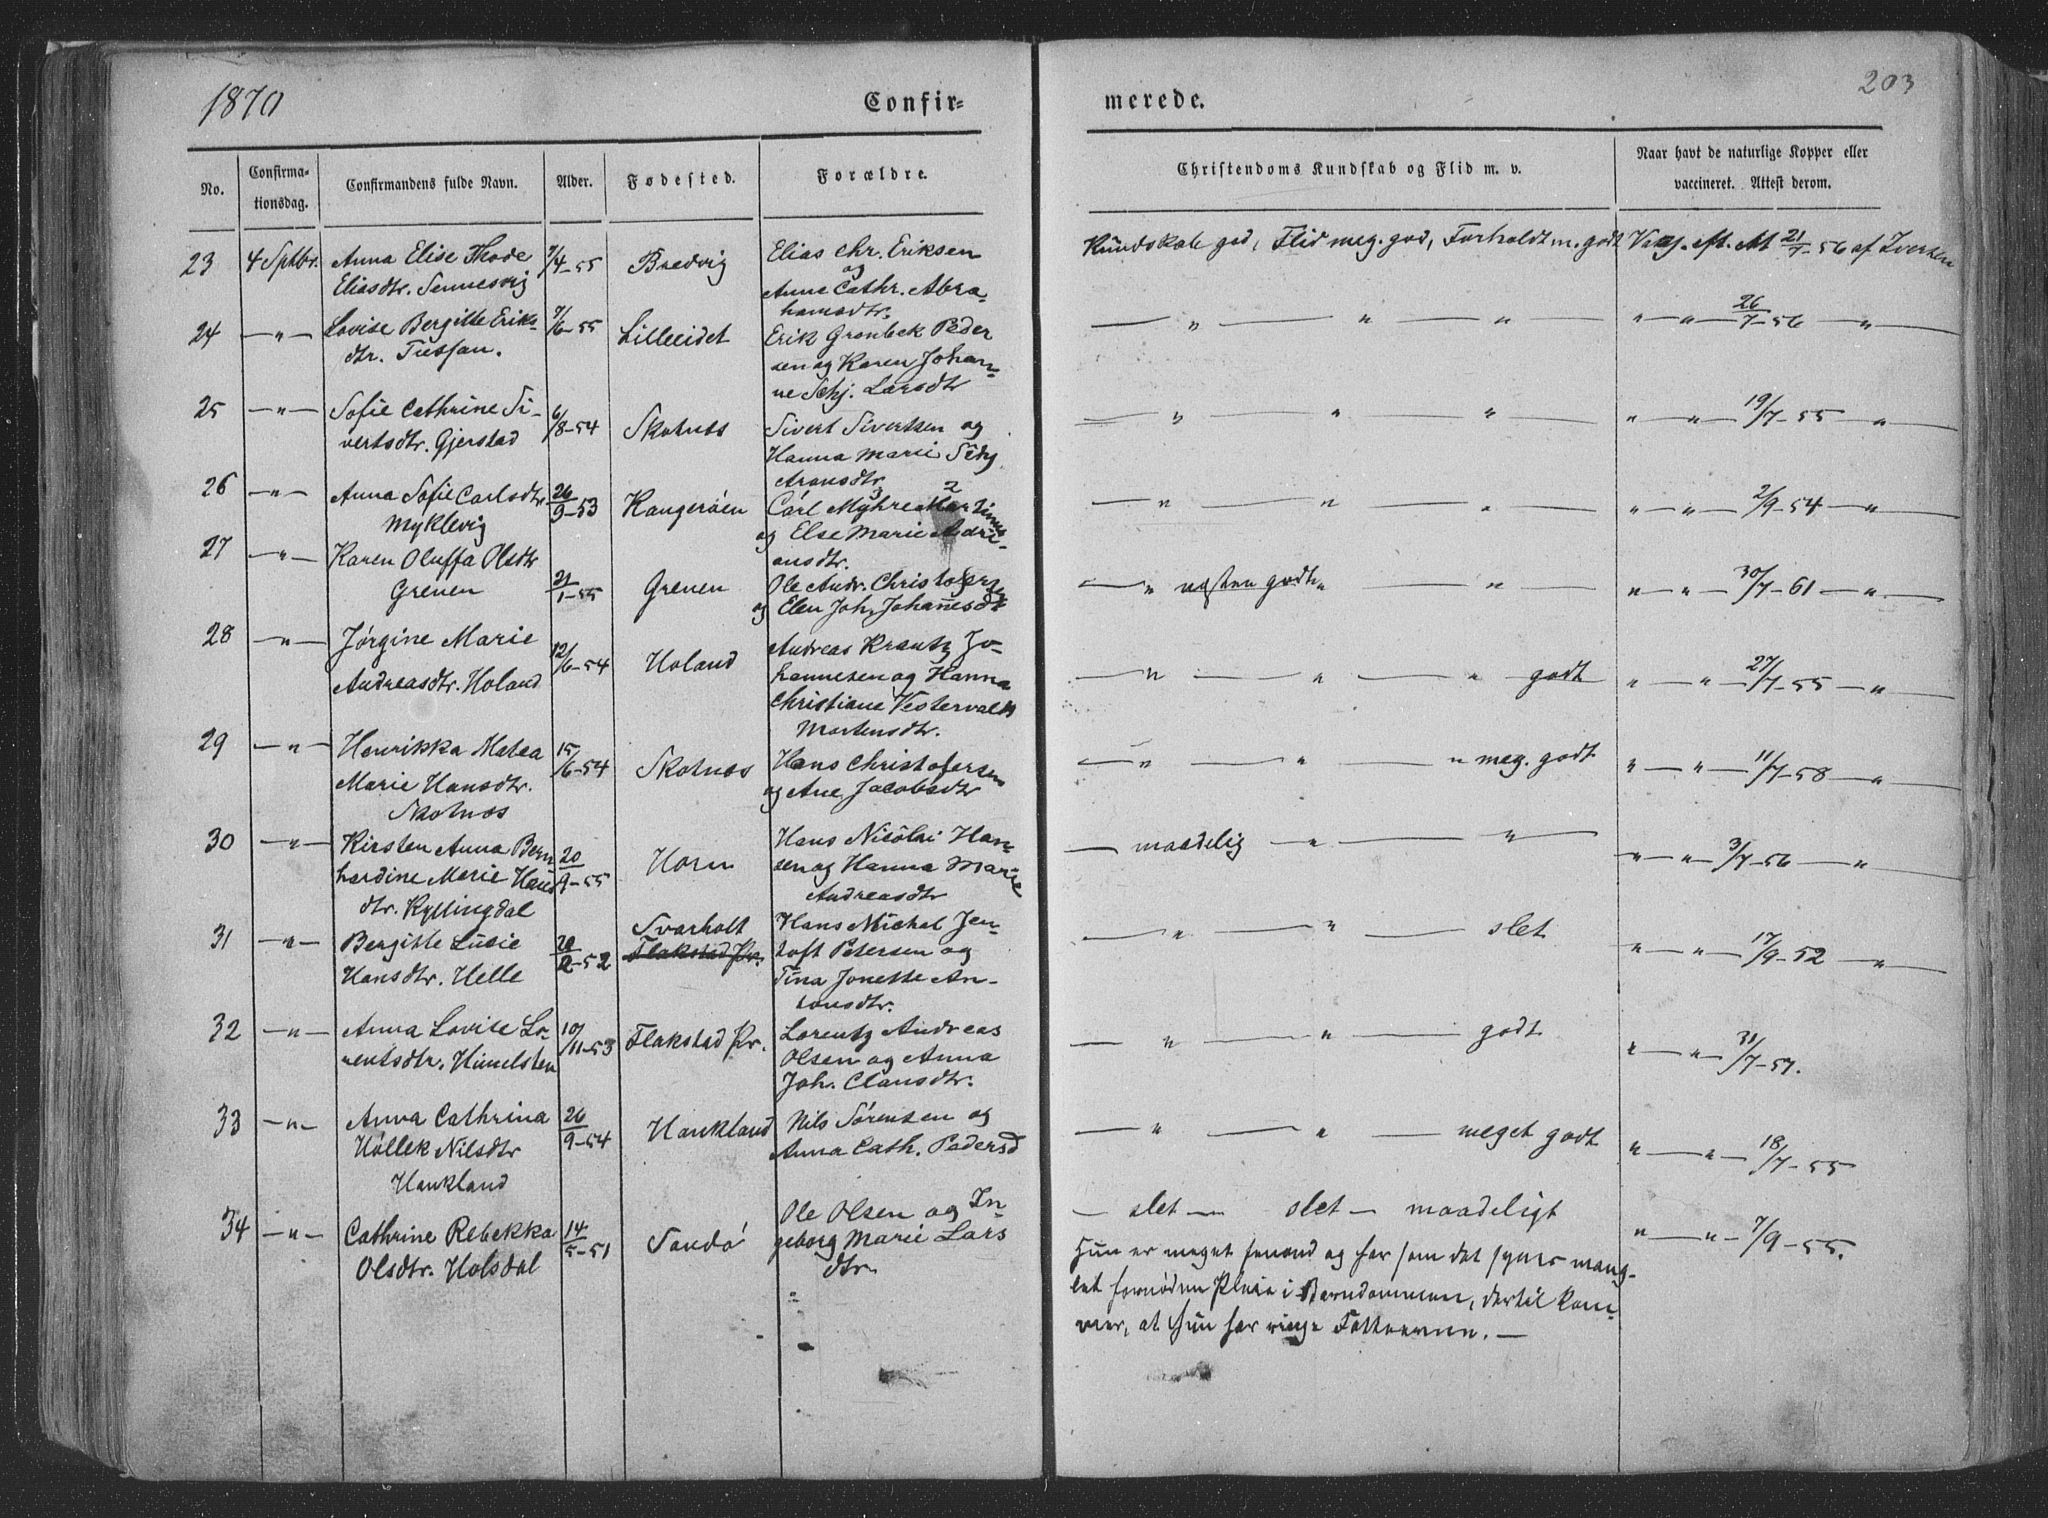 1870
Confir=
merede.
203
No.
Confirma-
tionsdag.
Confirmandens fulde Navn.
Alder.
Fødested.
Forældre.
Christendoms Kundskab og Flid m. v.
Naar havt de naturlige Kopper eller
vaccineret. Attest derom.
23 4 Sptbr. Anna Elise Thode 7/4-55 Bredvig Elias Chr. Eriksen
Eliasdtr. Sennesvig og
Anne Cathr. Abra-
hamsdtr.
Kundskab god, Flid meg. god, Forholdt m. godt Vacc. eft. Att 21/7-56 af Iversen
24 —"— Lovise Bergitte Eriks- 7/6-55 Lilleeidet Erik Grønbek Peder
dtr. Tussan. sen og Karen Johan-
ne Schj. Larsdtr
— " — " — " " — " — 26/7-56 — "
25 —"— Sofie Cathrine Si- 6/8-54 Skotnæs Sivert Sivertsen og
vertsdtr. Gjerstad Hanna Marie
Aronsdtr.
— " — " — " " — " — 19/7-55 — "
26 —"— Anna Sofie Carlsdtr 26/9-53 Kangerøen Carl Myhre Martinus
Myklevig og Else Marie Adri-
ansdtr.
— " — " — " " — " — 2/9-54 — "
27 —"— Karen Oluffa Olsdtr
Greven 21/1-55 Greven Ole Andr. Christofersen
og Elen Joh. Johanesdt
— " næsten godt " — " " — " — 30/7-61 — "
28 —"— Jørgine Marie 12/6-54 Holand Andreas Krantz Jo-
Andreasdtr. Holand hannesen og Hanna
Christiane Vestervaldt
Mortensdtr.
— " — " — " godt " — " — 27/7-55 — "
29 —"— Henrikka Matea 15/6-54 Skotnæs Hans Christofersen
Marie Hansdtr. og Ane Jacobsdtr
Skotnæs
— " — " — " meg. godt " — " — 11/7-58 — "
30 —"— Kirsten Anna Bern 20/9-55 Horn Hans Nicolai Han-
hardine Marie Hans sen og Hanna Marie
dtr. Kyllingdal Andreasdtr
— maadelig " — " " — " — 3/7-56 — "
31 —"— Bergitte Lusie 20/2-52 Svarholt Hans Michal Jen-
Hansdtr. Helle Flakstad Pr. toft Petersen og
Tina Jonette An-
tonsdtr.
— " — " — slet " — " — 17/9-52 — "
32 —"— Anna Lovise Lo- 10/11-53 Flakstad Pr. Lorentz Andreas
rentsdtr. Himelsten Olsen og Anna
Joh. Clausdtr.
— " — " — godt " — " — 31/7-57.
33 —"— Anna Cathrina 26/9-54 Haukland Nils Sørensen og
Høllek Nilsdtr Anna Cath. Pedersd
Haukland
— " — " — meget godt " — " — 18/7-55
34 —"— Cathrine Rebekka 14/5-51 Sandø Ole Olsen og In-
Olsdtr. Holsdal geborg Marie Lars
dtr.
— slet — slet — maadeligt " — " — 7/9-55.
Hun er meget senvoxd og har som det synes mang-
let fornøden Pleie i Barndommen, dertil kom-
mer, at hun har ringe Fatteevne. —